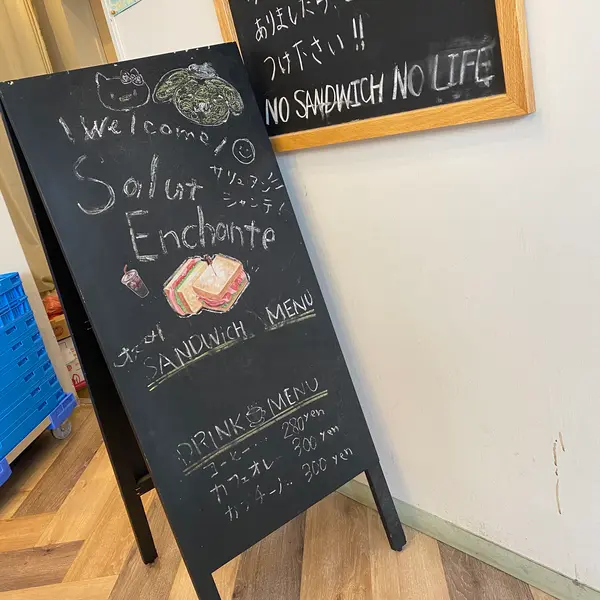 ありましたら、
つけ下さい!!
NO SANDWICH NO LIFE
! Welcome!
Salut
サリュ アン
シャンテ!
Enchante
SANDWICH MENU
DRINK MENU
コーヒー... 280 yen
カフェオレ... 300 yen
300 yen